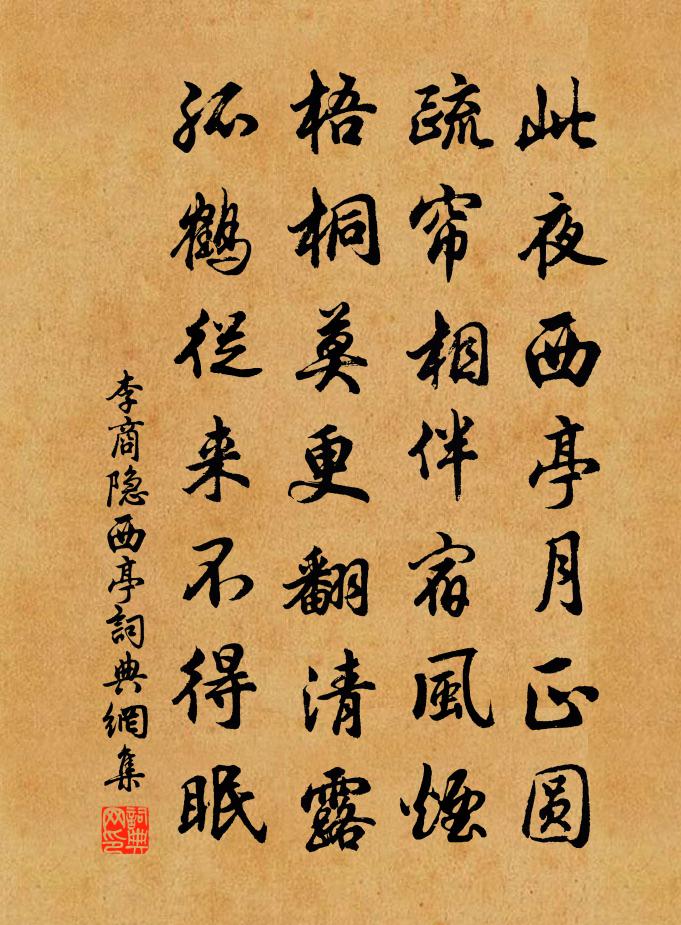 此夜西亭月正圆
疏帘相伴宿風煙
梧桐莫更翻清露
孤鶴從来不得眠
李商隐西亭詞典網集
詞典网印